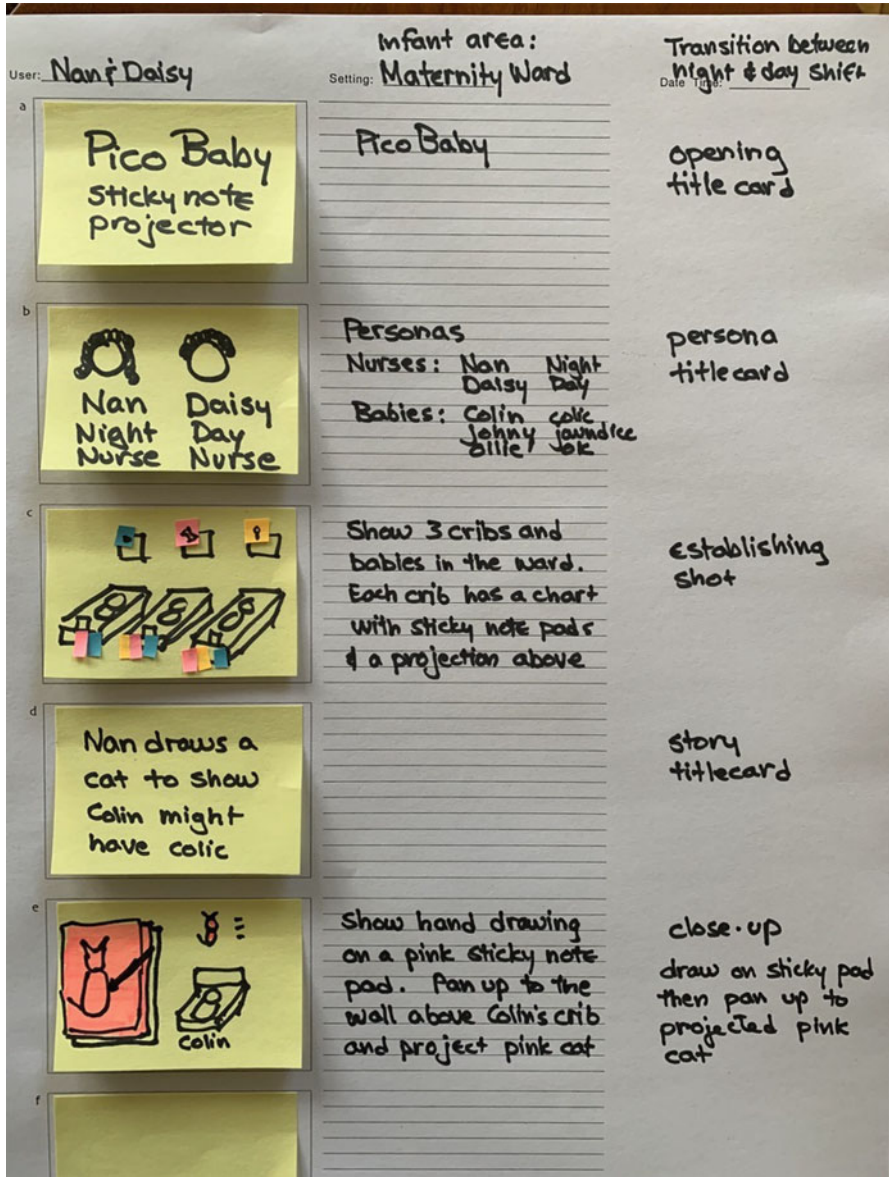 User: Nan & Daisy
Infant area:
Setting: Maternity Ward
Transition between
night & day shift
Date Time:
a
Pico Baby
sticky note
projector
Pico Baby
opening
title card
b
Nan Daisy
Night Day
Nurse Nurse
Personas
Nurses: Nan Night
Daisy Day
Babies: Colin colic
Johny jaundice
Ollie ok
persona
titlecard
c
Show 3 cribs and
babies in the ward.
Each crib has a chart
with sticky note pads
& a projection above
establishing
shot
d
Nan draws a
cat to show
Colin might
have colic
story
titlecard
e
Colin
Show hand drawing
on a pink sticky note
pad. Pan up to the
wall above Colin's crib
and project pink cat
close-up
draw on sticky pad
then pan up to
projected pink
cat
f